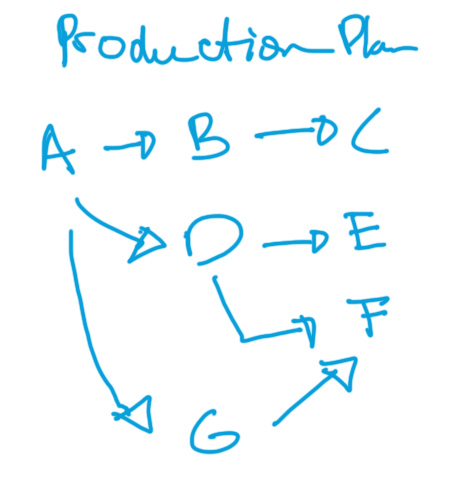 Production Plan
A B C
D E
F
G